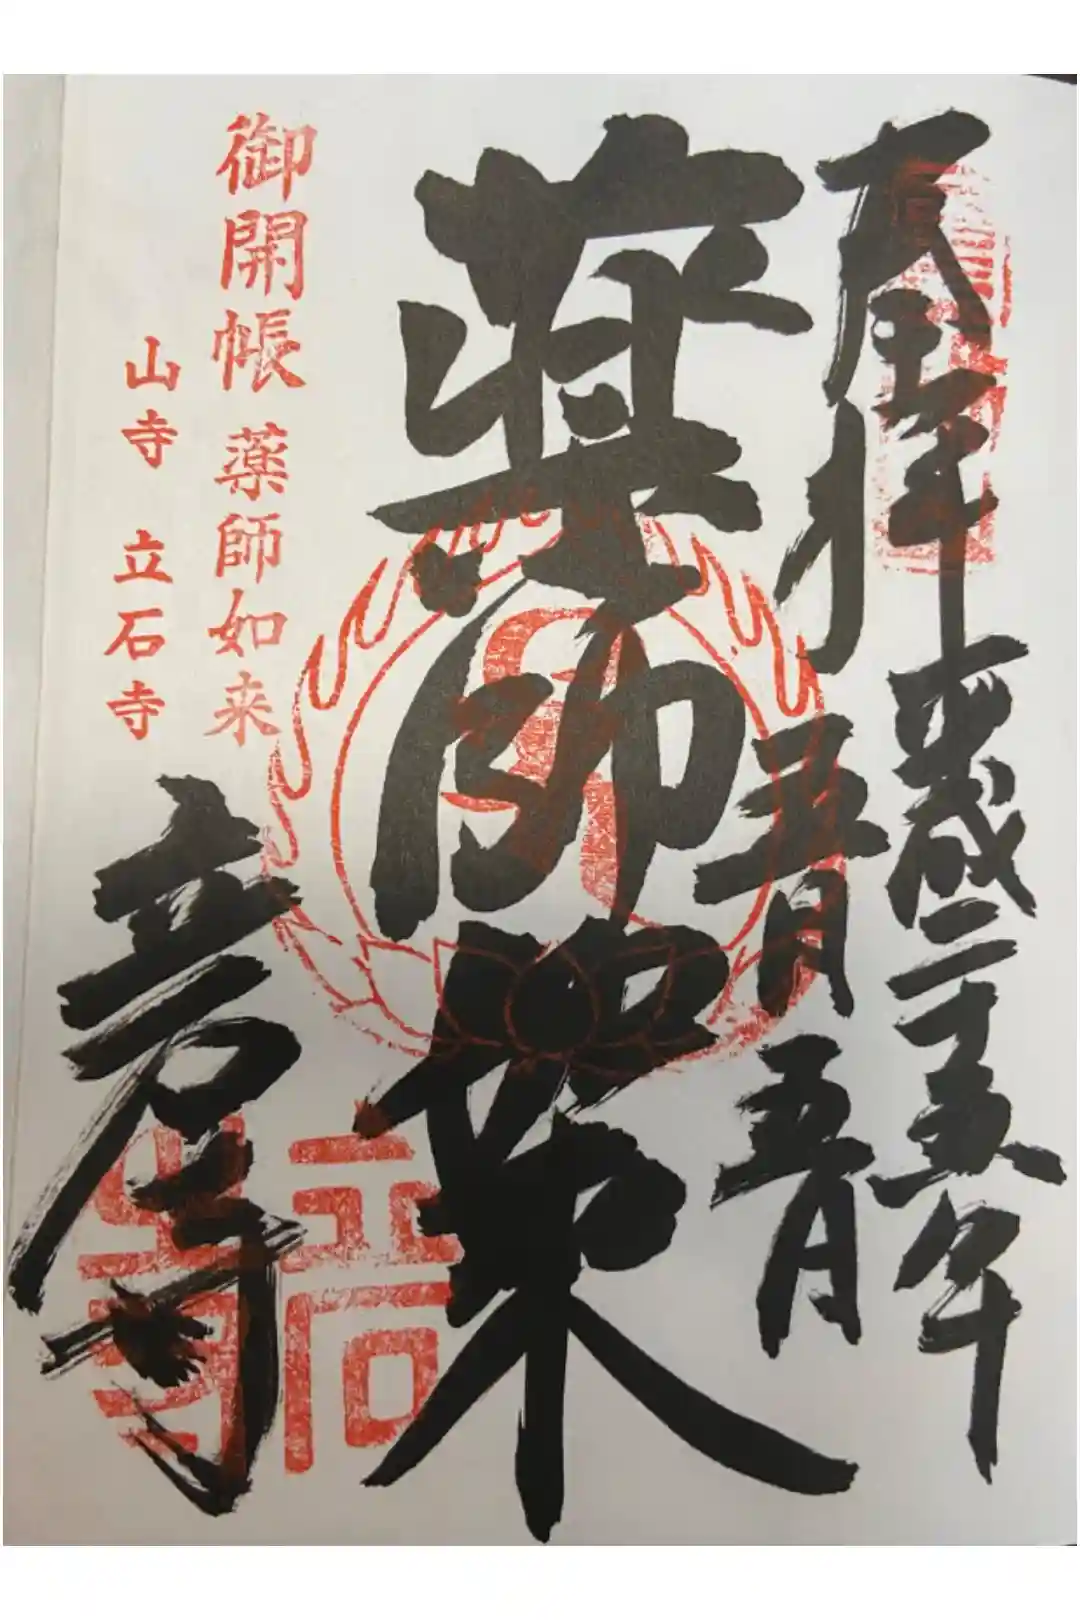 奉拝
平成二十五年
五月
五月
薬師如来
立石寺
御開帳 薬師如来
山寺 立石寺